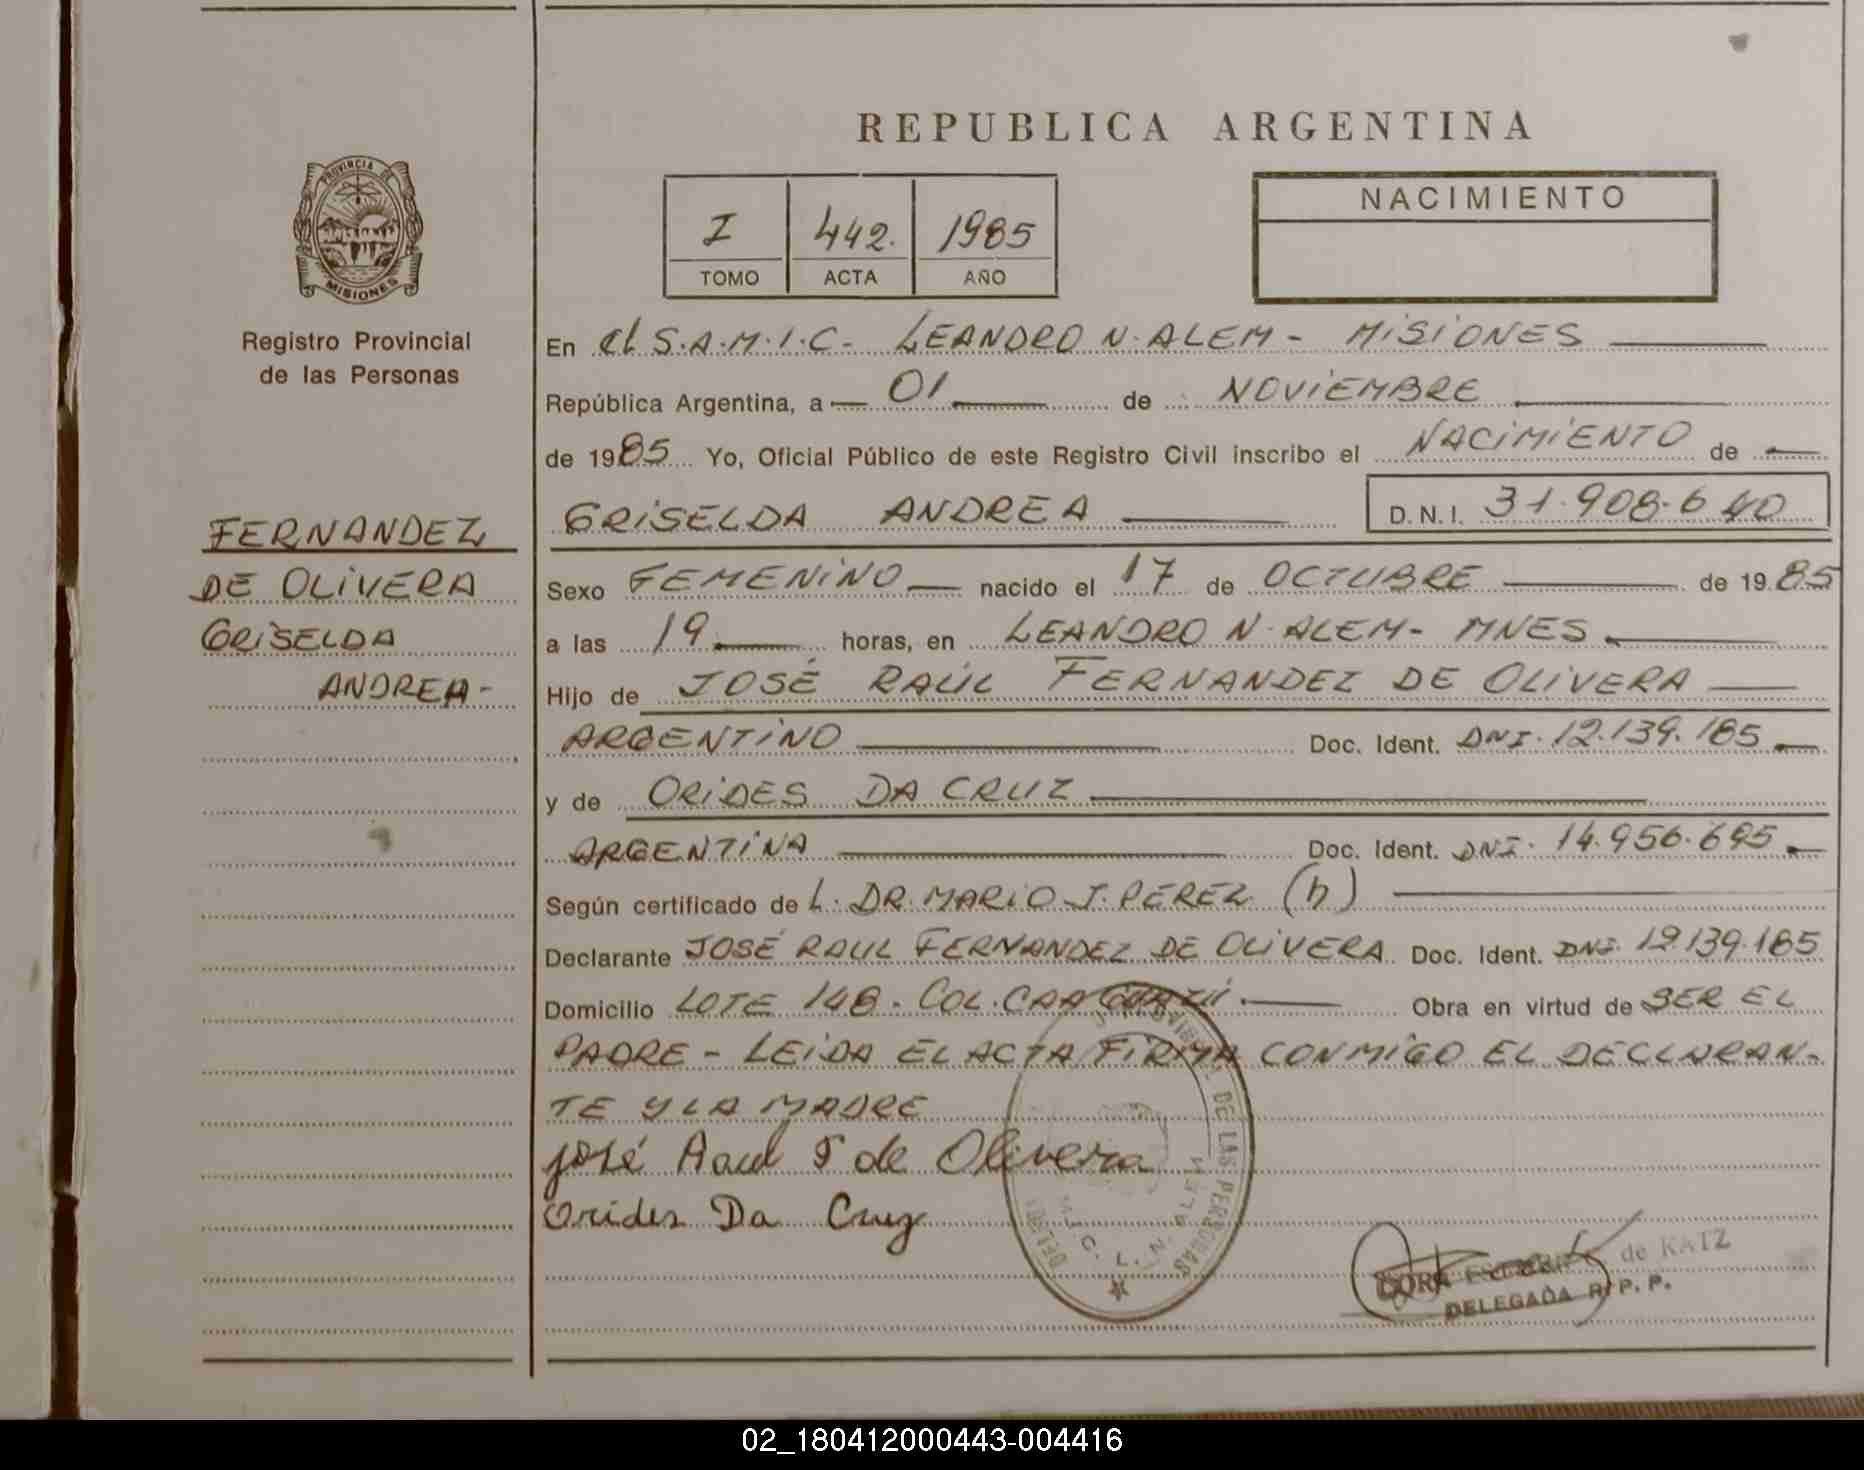 REPUBLICA ARGENTINA
PROVINCIA DE
MISIONES
Registro Provincial
de las Personas
I 442. 1985
TOMO ACTA AÑO
NACIMIENTO
FERNANDEZ
DE OLIVERA
GRISELDA
ANDREA-
En el S.A.M.I.C- LEANDRO N. ALEM - MISIONES
República Argentina, a 01 de NOVIEMBRE
de 1985 Yo, Oficial Público de este Registro Civil inscribo el NACIMIENTO de
GRISELDA ANDREA D.N.I. 31.908.640
Sexo FEMENINO nacido el 17 de OCTUBRE de 1985
a las 19 horas, en LEANDRO N. ALEM- MNES
Hijo de JOSÉ RAÚL FERNANDEZ DE OLIVERA
ARGENTINO Doc. Ident. DNI. 12.139.185
y de ORIDES DA CRUZ
ARGENTINA Doc. Ident. DNI. 14.956.695
Según certificado de L. DR. MARIO J. PEREZ (h)
Declarante JOSÉ RAUL FERNANDEZ DE OLIVERA Doc. Ident. DNI. 12.139.185
Domicilio LOTE 148. COL. CAA GUAZÚ. Obra en virtud de SER EL
PADRE - LEIDA EL ACTA FIRMA CONMIGO EL DECLARAN-
TE Y LA MADRE
José Raul F de Olivera
Orides Da Cruz
DE LAS PERSONAS
L. N. ALEM
DORA de KATZ
DELEGADA R. P. P.
02_180412000443-004416